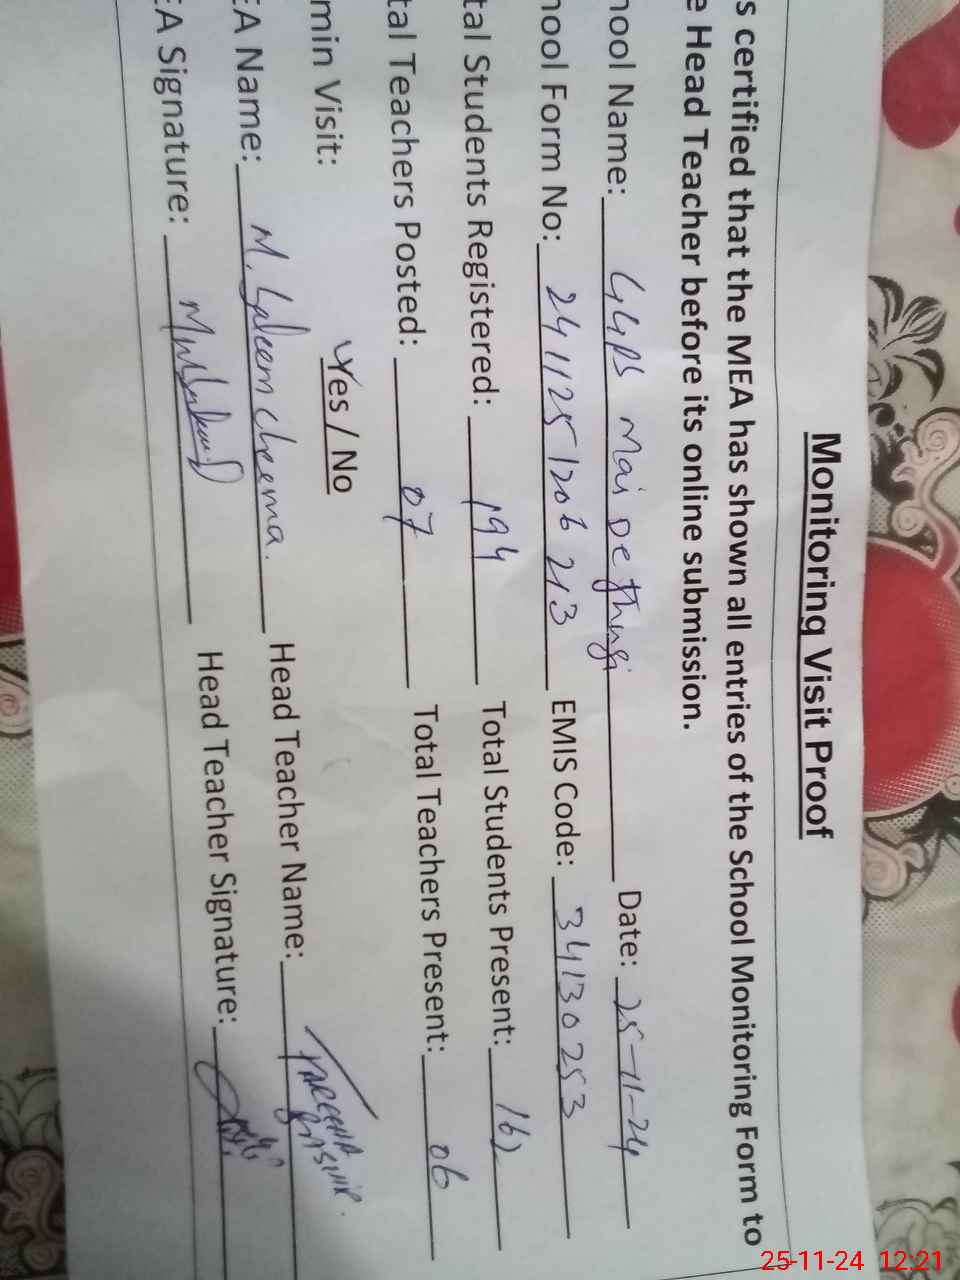 Monitoring Visit Proof
s certified that the MEA has shown all entries of the School Monitoring Form to
e Head Teacher before its online submission.
hool Name: GGPS Mai De Jhugi Date: 25-11-24
hool Form No: 2411251206213 EMIS Code: 34130253
tal Students Registered: 194 Total Students Present: 162
tal Teachers Posted: 07 Total Teachers Present: 06
min Visit: Yes / No
EA Name: M. Saleem Cheema. Head Teacher Name:
EA Signature: Head Teacher Signature:
25-11-24 12:21